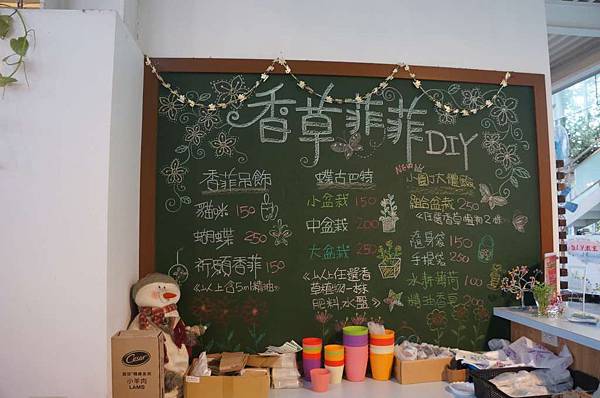 香草菲菲DIY
香菲吊飾
貓咪 150
蝴蝶 250
祈願香菲 150
《以上含5ml精油》
蝶古巴特
小盆栽 150
中盆栽 200
大盆栽 250
《以上任選香
草植物一株
肥料水盤》
NEW
組合盆栽 250
《任選香草植物2株》
隨身袋 150
手提袋 250
水耕薄荷 100
精油香皂 200
Cesar
小羊肉
LAMB